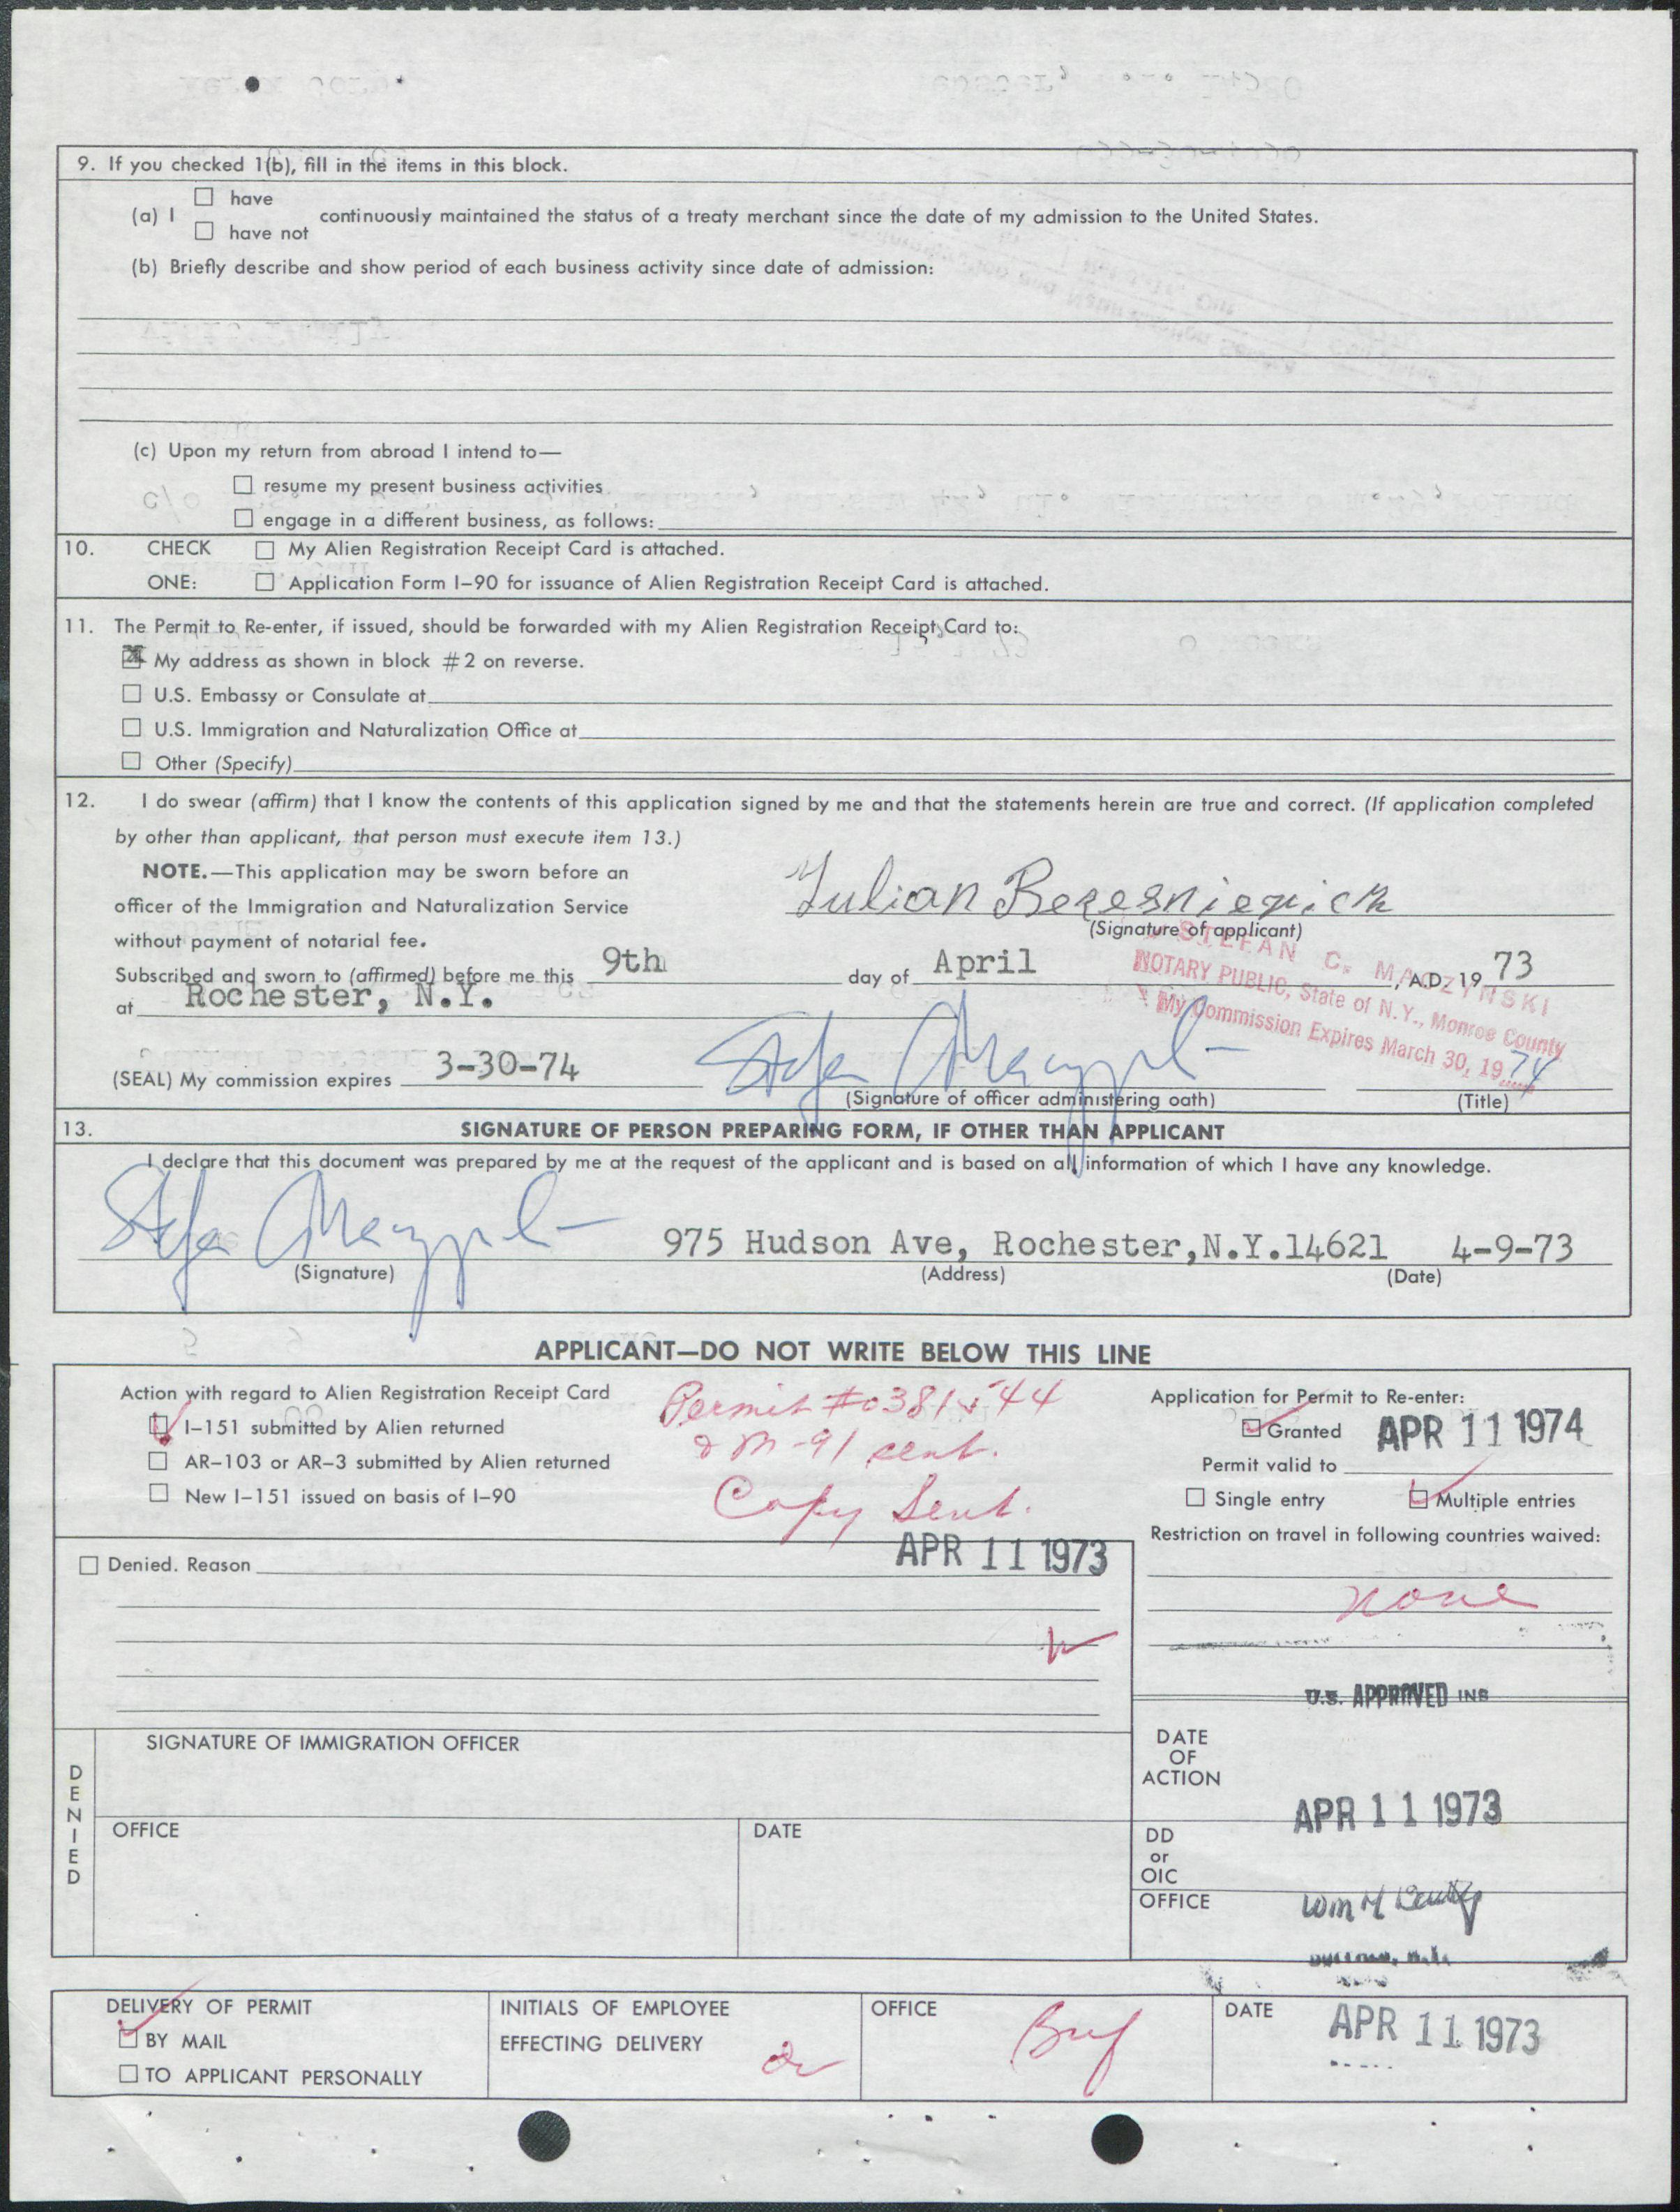 9. If you checked 1(b), fill in the items in this block.
(a) I ☐ have
☐ have not continuously maintained the status of a treaty merchant since the date of my admission to the United States.
(b) Briefly describe and show period of each business activity since date of admission:
(c) Upon my return from abroad I intend to—
☐ resume my present business activities
☐ engage in a different business, as follows:
10. CHECK ☐ My Alien Registration Receipt Card is attached.
ONE: ☐ Application Form I-90 for issuance of Alien Registration Receipt Card is attached.
11. The Permit to Re-enter, if issued, should be forwarded with my Alien Registration Receipt Card to:
☒ My address as shown in block #2 on reverse.
☐ U.S. Embassy or Consulate at
☐ U.S. Immigration and Naturalization Office at
☐ Other (Specify)
12. I do swear (affirm) that I know the contents of this application signed by me and that the statements herein are true and correct. (If application completed
by other than applicant, that person must execute item 13.)
NOTE.—This application may be sworn before an
officer of the Immigration and Naturalization Service
without payment of notarial fee.
Julian Beresniewicz
(Signature of applicant)
STEFAN C. MACZYNSKI
NOTARY PUBLIC, State of N.Y., Monroe County
My Commission Expires March 30, 1974
Subscribed and sworn to (affirmed) before me this 9th day of April, A.D. 19 73
at Rochester, N.Y.
(SEAL) My commission expires 3-30-74
(Signature of officer administering oath) (Title)
13. SIGNATURE OF PERSON PREPARING FORM, IF OTHER THAN APPLICANT
I declare that this document was prepared by me at the request of the applicant and is based on all information of which I have any knowledge.
975 Hudson Ave, Rochester,N.Y.14621 4-9-73
(Signature) (Address) (Date)
APPLICANT—DO NOT WRITE BELOW THIS LINE
Action with regard to Alien Registration Receipt Card
☑ I-151 submitted by Alien returned
☐ AR-103 or AR-3 submitted by Alien returned
☐ New I-151 issued on basis of I-90
Permit #
M-91 sent.
Copy Sent.
APR 11 1973
Application for Permit to Re-enter:
☑ Granted APR 11 1974
Permit valid to
☐ Single entry ☑ Multiple entries
Restriction on travel in following countries waived:
none
☐ Denied. Reason
U.S. APPROVED INS
DENIED
SIGNATURE OF IMMIGRATION OFFICER
OFFICE DATE
DATE
OF
ACTION
APR 11 1973
DD
or
OIC
OFFICE
DELIVERY OF PERMIT
☑ BY MAIL
☐ TO APPLICANT PERSONALLY
INITIALS OF EMPLOYEE
EFFECTING DELIVERY
OFFICE Buf
DATE APR 11 1973